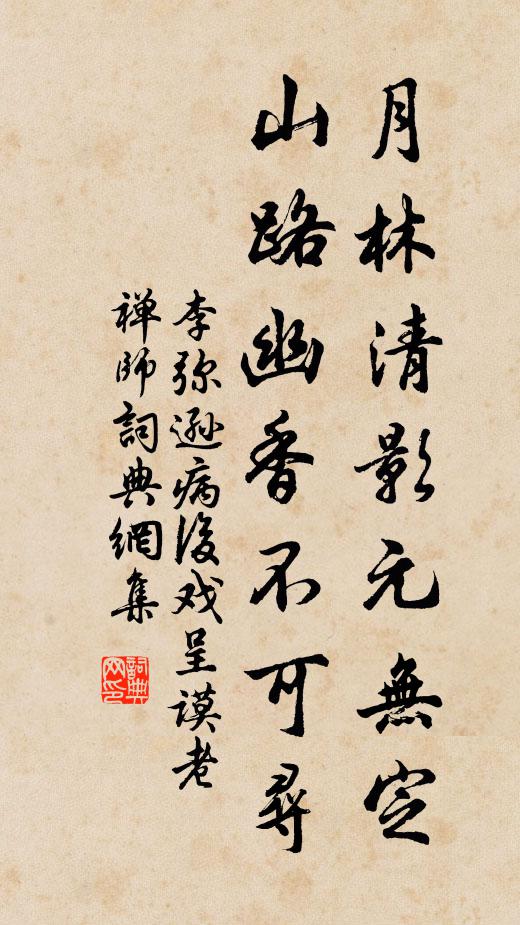 月林清影元無定
山路幽香不可尋
李弥遜病後戏呈謨老
禅師詞典網集
詞典网印